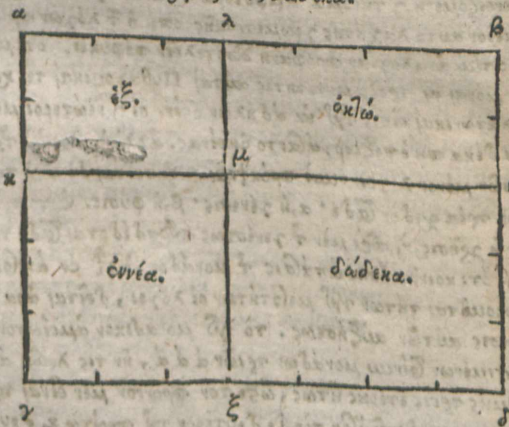 α λ β
ἕξ. ὀκτώ.
κ μ
ἐννέα. δώδεκα.
γ ξ δ